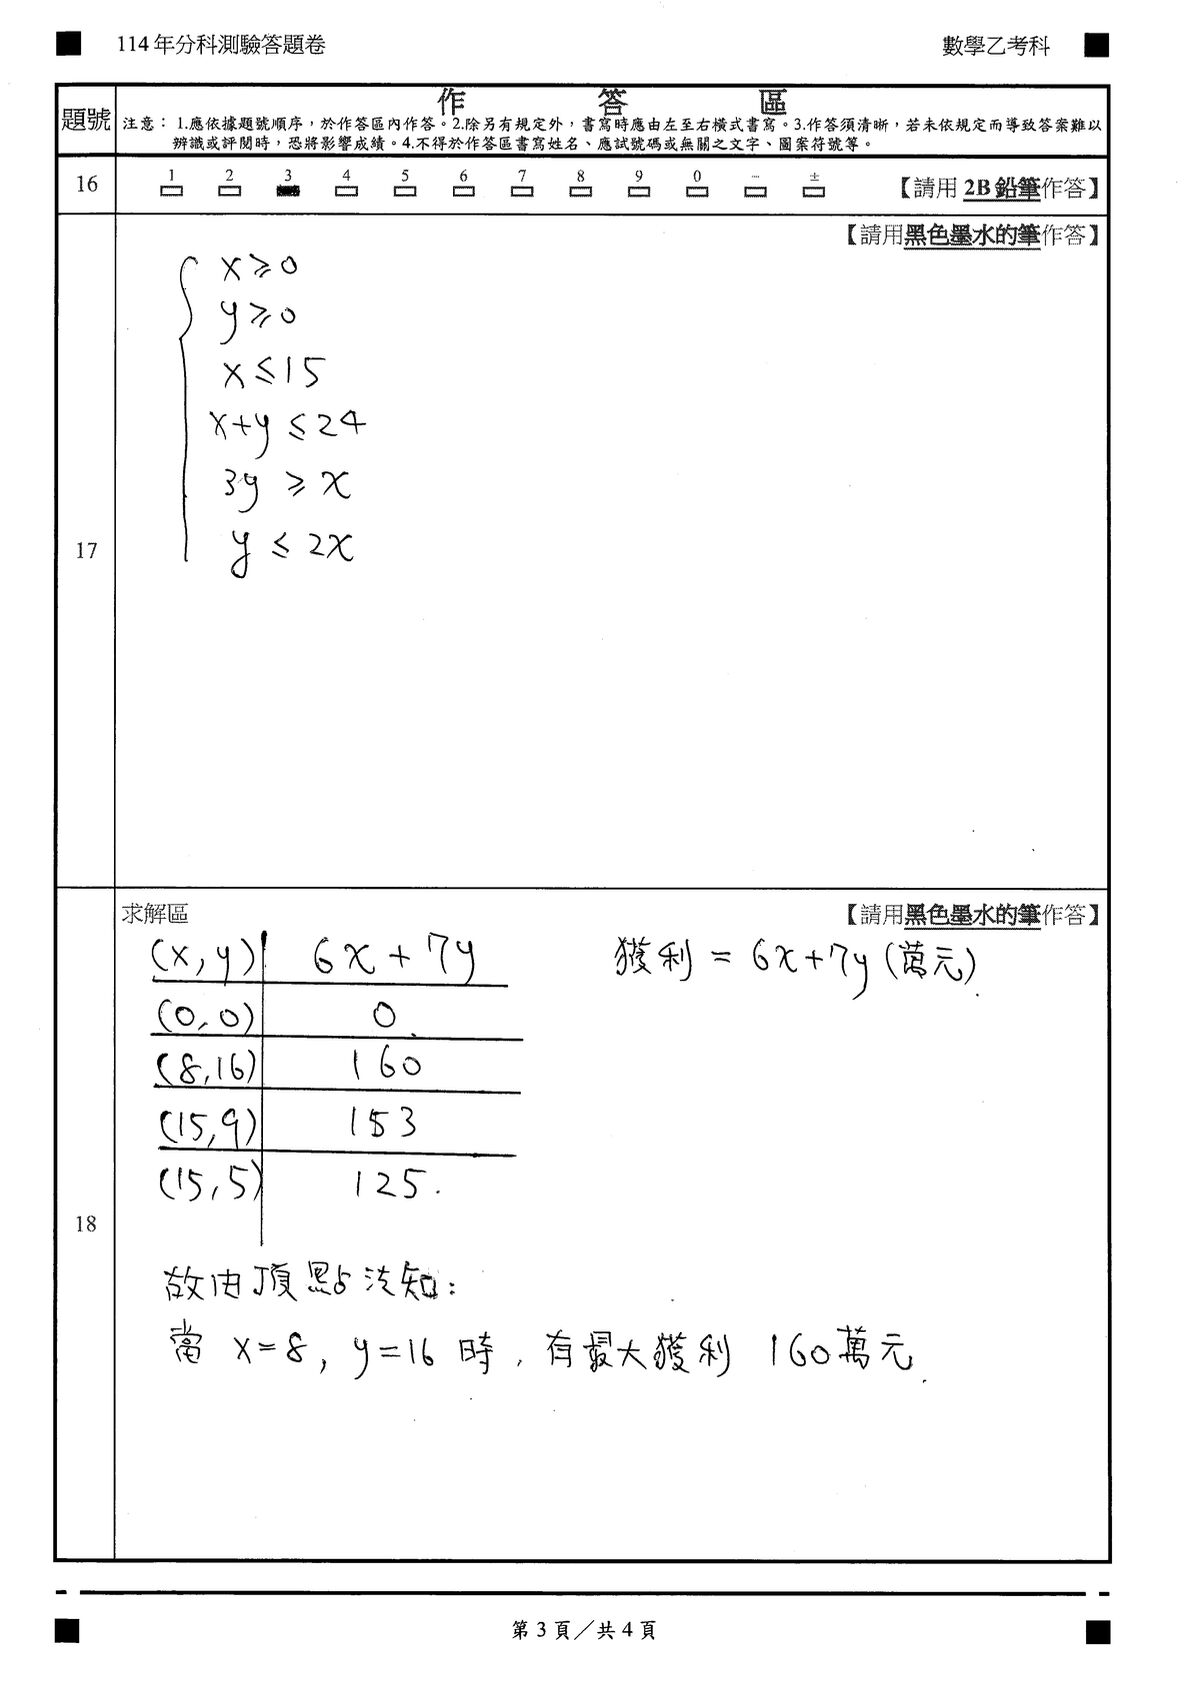 114年分科測驗答題卷
數學乙考科
題號
作 答 區
注意： 1.應依據題號順序，於作答區內作答。2.除另有規定外，書寫時應由左至右橫式書寫。3.作答須清晰，若未依規定而導致答案難以
辨識或評閱時，恐將影響成績。4.不得於作答區書寫姓名、應試號碼或無關之文字、圖案符號等。
16
1 2 3 4 5 6 7 8 9 0 − ±
【請用 2B 鉛筆作答】
17
【請用黑色墨水的筆作答】
x ≥ 0
y ≥ 0
x ≤ 15
x+y ≤ 24
3y ≥ x
y ≤ 2x
18
求解區
【請用黑色墨水的筆作答】
(x, y) 6x + 7y
獲利 = 6x+7y (萬元)
(0, 0) 0
(8,16) 160
(15,9) 153
(15,5) 125.
故由頂點法知：
當 x=8, y=16 時, 有最大獲利 160萬元.
第 3 頁／共 4 頁